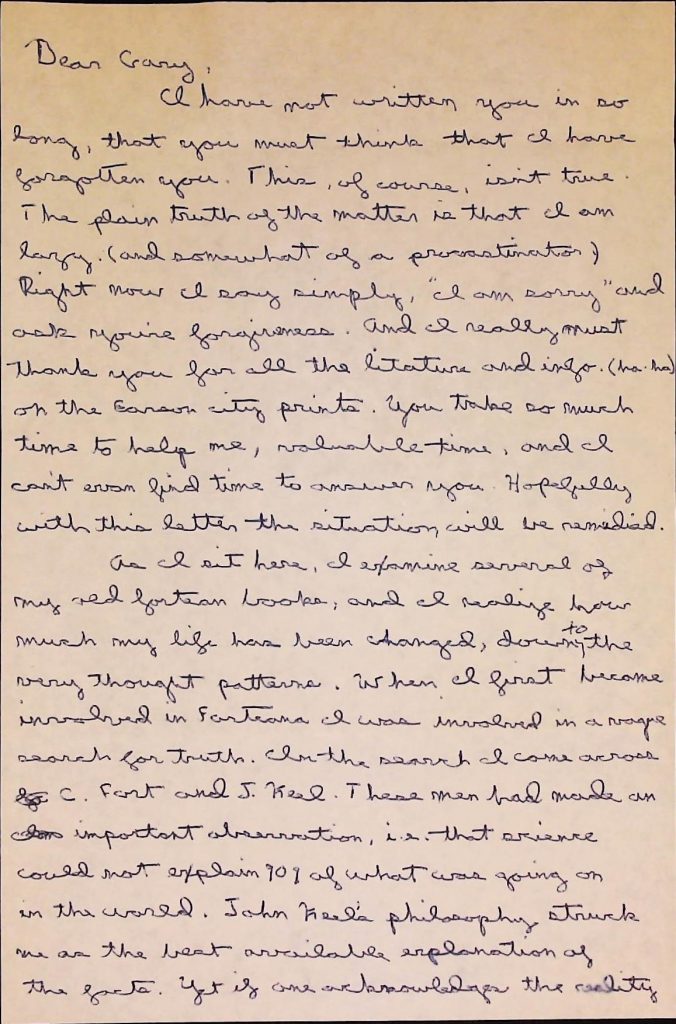 Dear Gary,
I have not written you in so
long, that you must think that I have
forgotten you. This, of course, isn't true.
The plain truth of the matter is that I am
lazy. (and somewhat of a procastinator)
Right now I say simply, "I am sorry" and
ask you're forgiveness. And I really must
thank you for all the litature and info. (ha-ha)
on the Carson city prints. You take so much
time to help me, valuable time, and I
can't even find time to answer you. Hopefully
with this letter the situation will be remedied.
As I sit here, I examine several of
my old fortean books, and I realize how
much my life has been changed, down to the
very thought patterns. When I first become
involved in Forteana I was involved in a vague
search for truth. In the search I come across
C. Fort and J. Keel. These men had made an
important observation, i.e. that science
could not explain 90% of what was going on
in the world. John Keel's philosophy struck
me as the best available explanation of
the facts. Yet if one acknowledges the reality